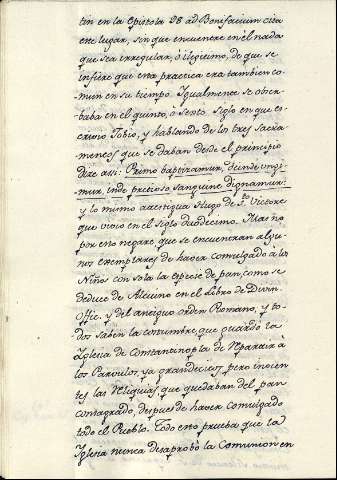 tin en la Epistola 98 ad Bonifacium cita
este lugar, sin que encuentre en el nada
que sea irregular, ó ilegitimo, de que se
infiere que esta practica era tambien co-
mun en su tiempo. Igualmente se obser-
baba en el quinto, ó sexto Siglo en que es-
crivio Jobio, y hablando de los tres Sacra-
mentos que se daban desde el principio
dize assi: Primo baptizamur, deinde ungi-
mur, inde pretioso sanguine dignamur:
y lo mismo atestigua Hugo de Sto. Victore
que vivio en el siglo duodecimo. Mas no
por esto negaré, que se encuentran algu-
nos exemplares de haver comulgado á los
Niños con sola la especie de pan, como se
deduce de Alcuino en el Libro de Divin.
Offic. y del antiguo orden Romano, y to-
dos saben la costumbre que guardó la
Iglesia de Constantinopla de repartir á
los Parvulos, ya grandecitos, pero inocen-
tes las Reliquias que quedaban del pan
consagrado, despues de haver comulgado
todo el Pueblo. Todo esto prueba que la
Iglesia nunca desaprobó la Comunion en